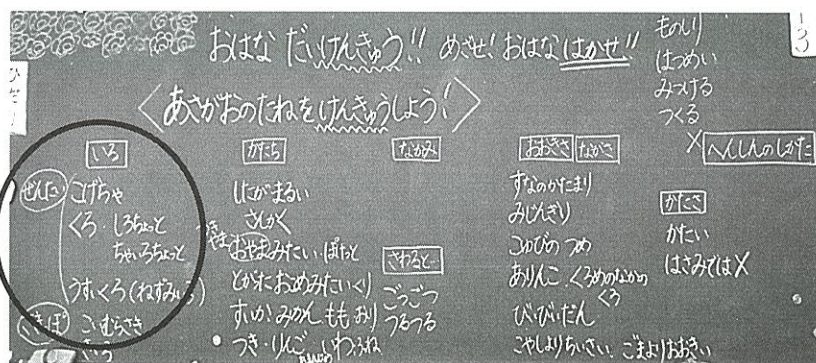 おはな だいけんきゅう!! めざせ! おはな はかせ!!
ものしり
はつめい
みつける
つくる
3
〈あさがおのたねをけんきゅうしよう!〉
いろ
ぜんたい
こげちゃ
くろ・しろちょっと
ちゃいろちょっと
うすいくろ(ねずみいろ)
こいむらさき
かたち
したがまるい
さんかく
おやまみたい・ぽたっと
すいか みかん もも おり
つき・りんご いわ ふね
なかみ
さわると…
ごつごつ
つるつる
おおきさ ながさ
すなのかたまり
みじんぎり
こゆびのつめ
ありんこ・くろめのなかの
くろ
びいびいだん
こやしよりちいさい ごまよりおおきい
×へんしんのしかた
かたさ
かたい
はさみでは×